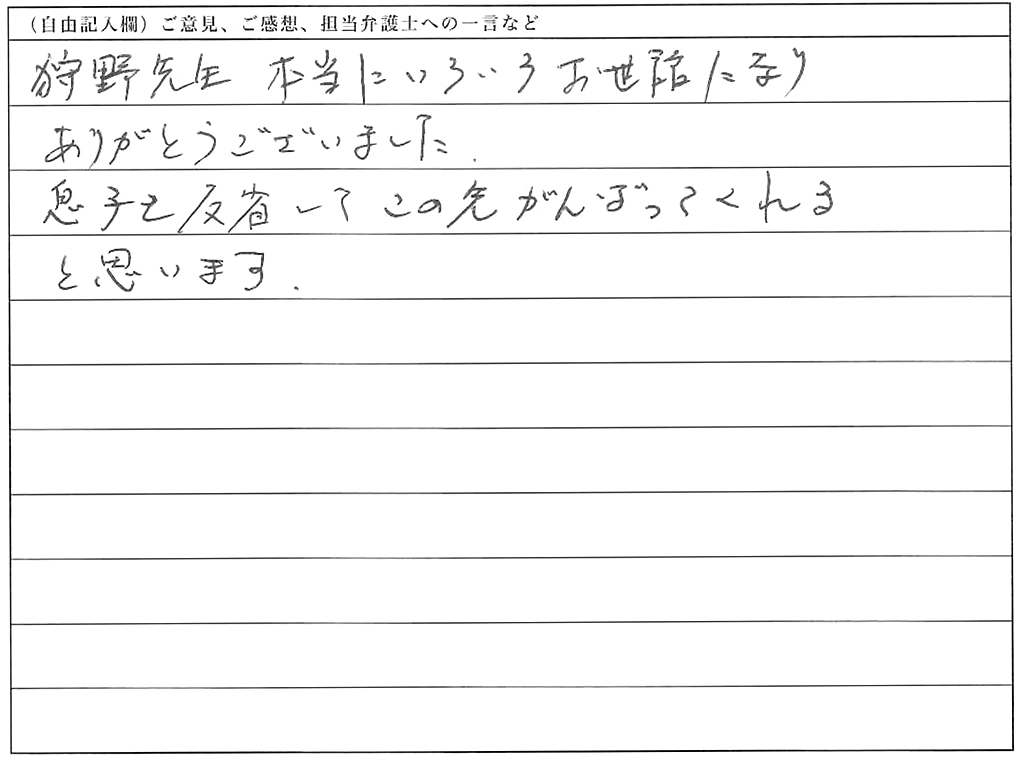 （自由記入欄）ご意見、ご感想、担当弁護士への一言など
狩野先生 本当にいろいろお世話になり
ありがとうございました.
息子も反省して この先がんばってくれる
と思います.